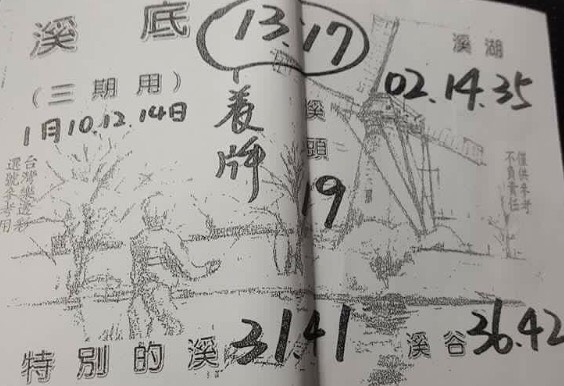 溪底
(三期用)
1月10.12.14日
台灣樂透彩
選號參考用
13.17
養牌
溪頭
19
溪湖
02.14.35
僅供參考
不負責任
特別的溪 31.41
溪谷 36.42